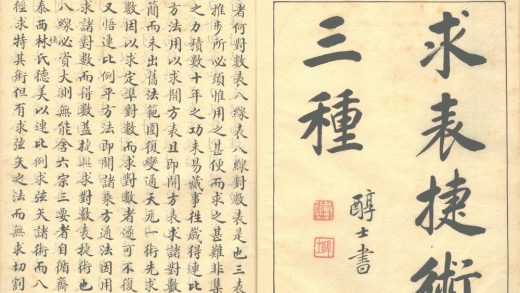 求表捷術
三種
醇士書
者何對數表八線表八線對數表是也三表
推步所必須惟用之甚便而求之甚難非集
之力積數十年之功未易蕆事往歲得連比
方法用以求開方表且即開方表求諸對數
簡而未出舊法範圍復變通天元一術先求
數因以求定準對數而求對數者遂可不復
又悟連比例平方法即開諸乘方通法因而
求諸對數而得對數蓋捷與求對數表捷術也
八線必資大測無能舍六宗三要者自循齋
泰西氏德美以連比例求弦矢諸術而八
徑求特其術但有求弦矢之法而無求切割